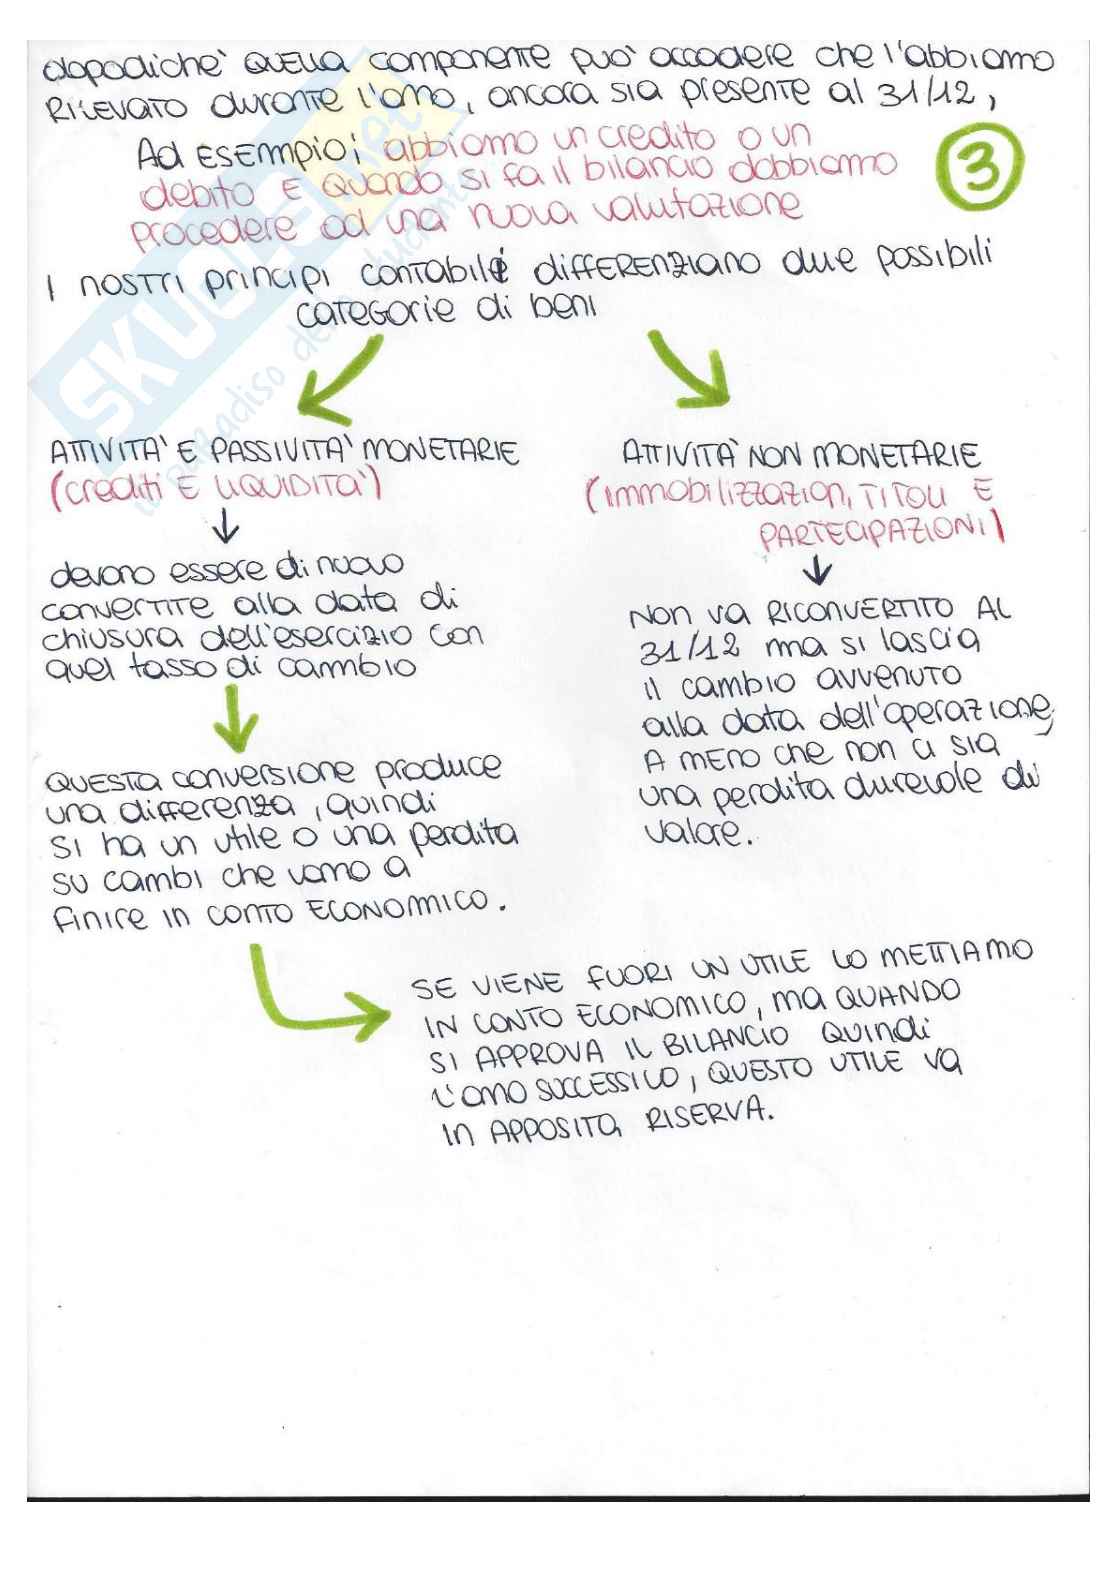 dopodichè QUELLA componente può accadere che l'abbiamo
RILEVATO durante l'anno, ancora sia presente al 31/12,
Ad ESEMPIO: abbiamo un credito o un
debito E quando si fa il bilancio dobbiamo
procedere ad una nuova valutazione
3
I nostri principi contabili differenziano due possibili
categorie di beni
ATTIVITA' E PASSIVITA' MONETARIE
(crediti E LIQUIDITA')
devono essere di nuovo
convertite alla data di
chiusura dell'esercizio con
quel tasso di cambio
QUESTA conversione produce
una differenza, quindi
si ha un utile o una perdita
su cambi che vanno a
finire in conto ECONOMICO.
ATTIVITÀ NON MONETARIE
(immobilizzazioni, TITOLI E
PARTECIPAZIONI)
NON va RICONVERTITO AL
31/12 ma si lascia
il cambio avvenuto
alla data dell'operazione,
A meno che non ci sia
una perdita durevole di
valore.
SE VIENE FUORI UN UTILE LO METTIAMO
IN CONTO ECONOMICO, MA QUANDO
SI APPROVA IL BILANCIO QUINDI
L'anno SUCCESSIVO, QUESTO UTILE VA
IN APPOSITA RISERVA.
SKUOLA.net
il paradiso dello studente